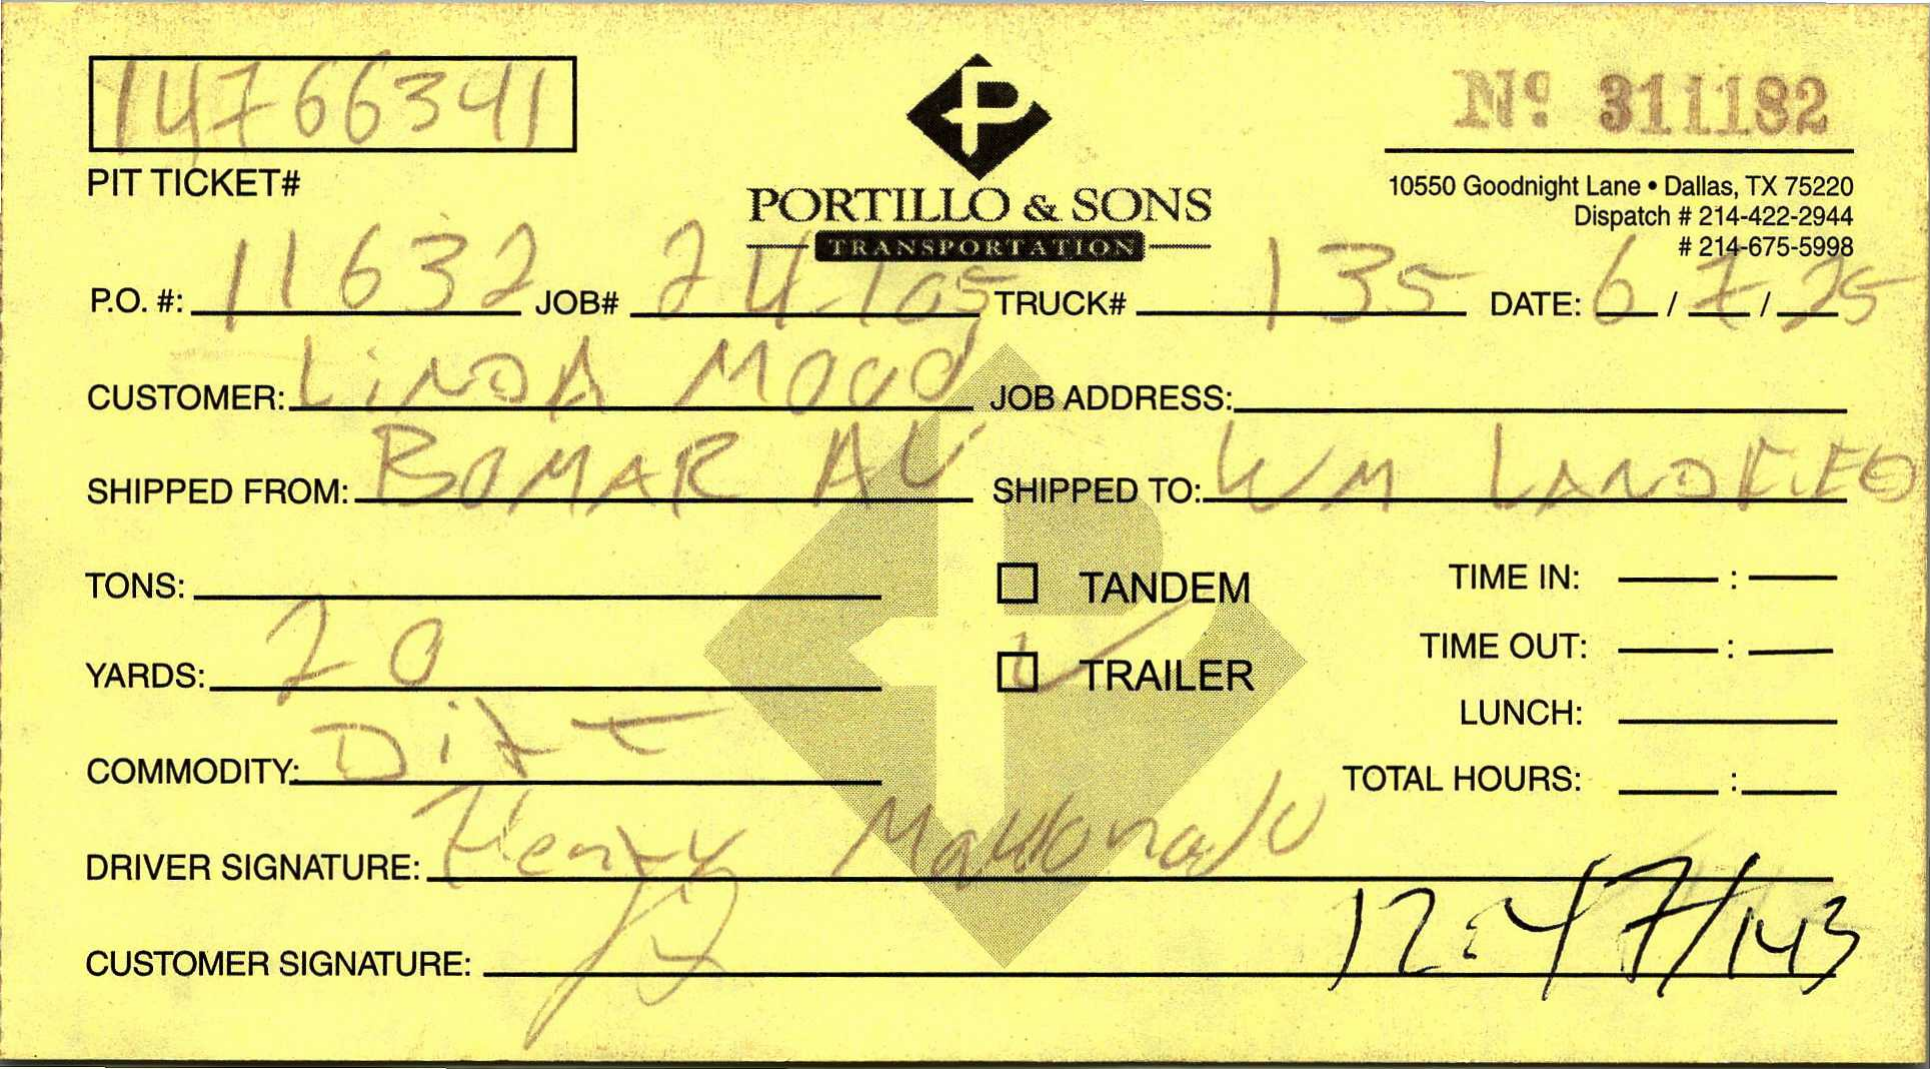 14766341
PIT TICKET#
P
PORTILLO & SONS
TRANSPORTATION
Nº 311182
10550 Goodnight Lane • Dallas, TX 75220
Dispatch # 214-422-2944
# 214-675-5998
P.O. #: 11632 JOB# 24-105 TRUCK# 135 DATE: 6/7/25
CUSTOMER: LiNDA MOOD JOB ADDRESS:
SHIPPED FROM: BOMAR AV SHIPPED TO: WM
TONS: TANDEM TIME IN: :
YARDS: 20 TRAILER TIME OUT: :
LUNCH:
COMMODITY: Dirt TOTAL HOURS: :
DRIVER SIGNATURE: Henry Maldonado
CUSTOMER SIGNATURE: 12:47/143